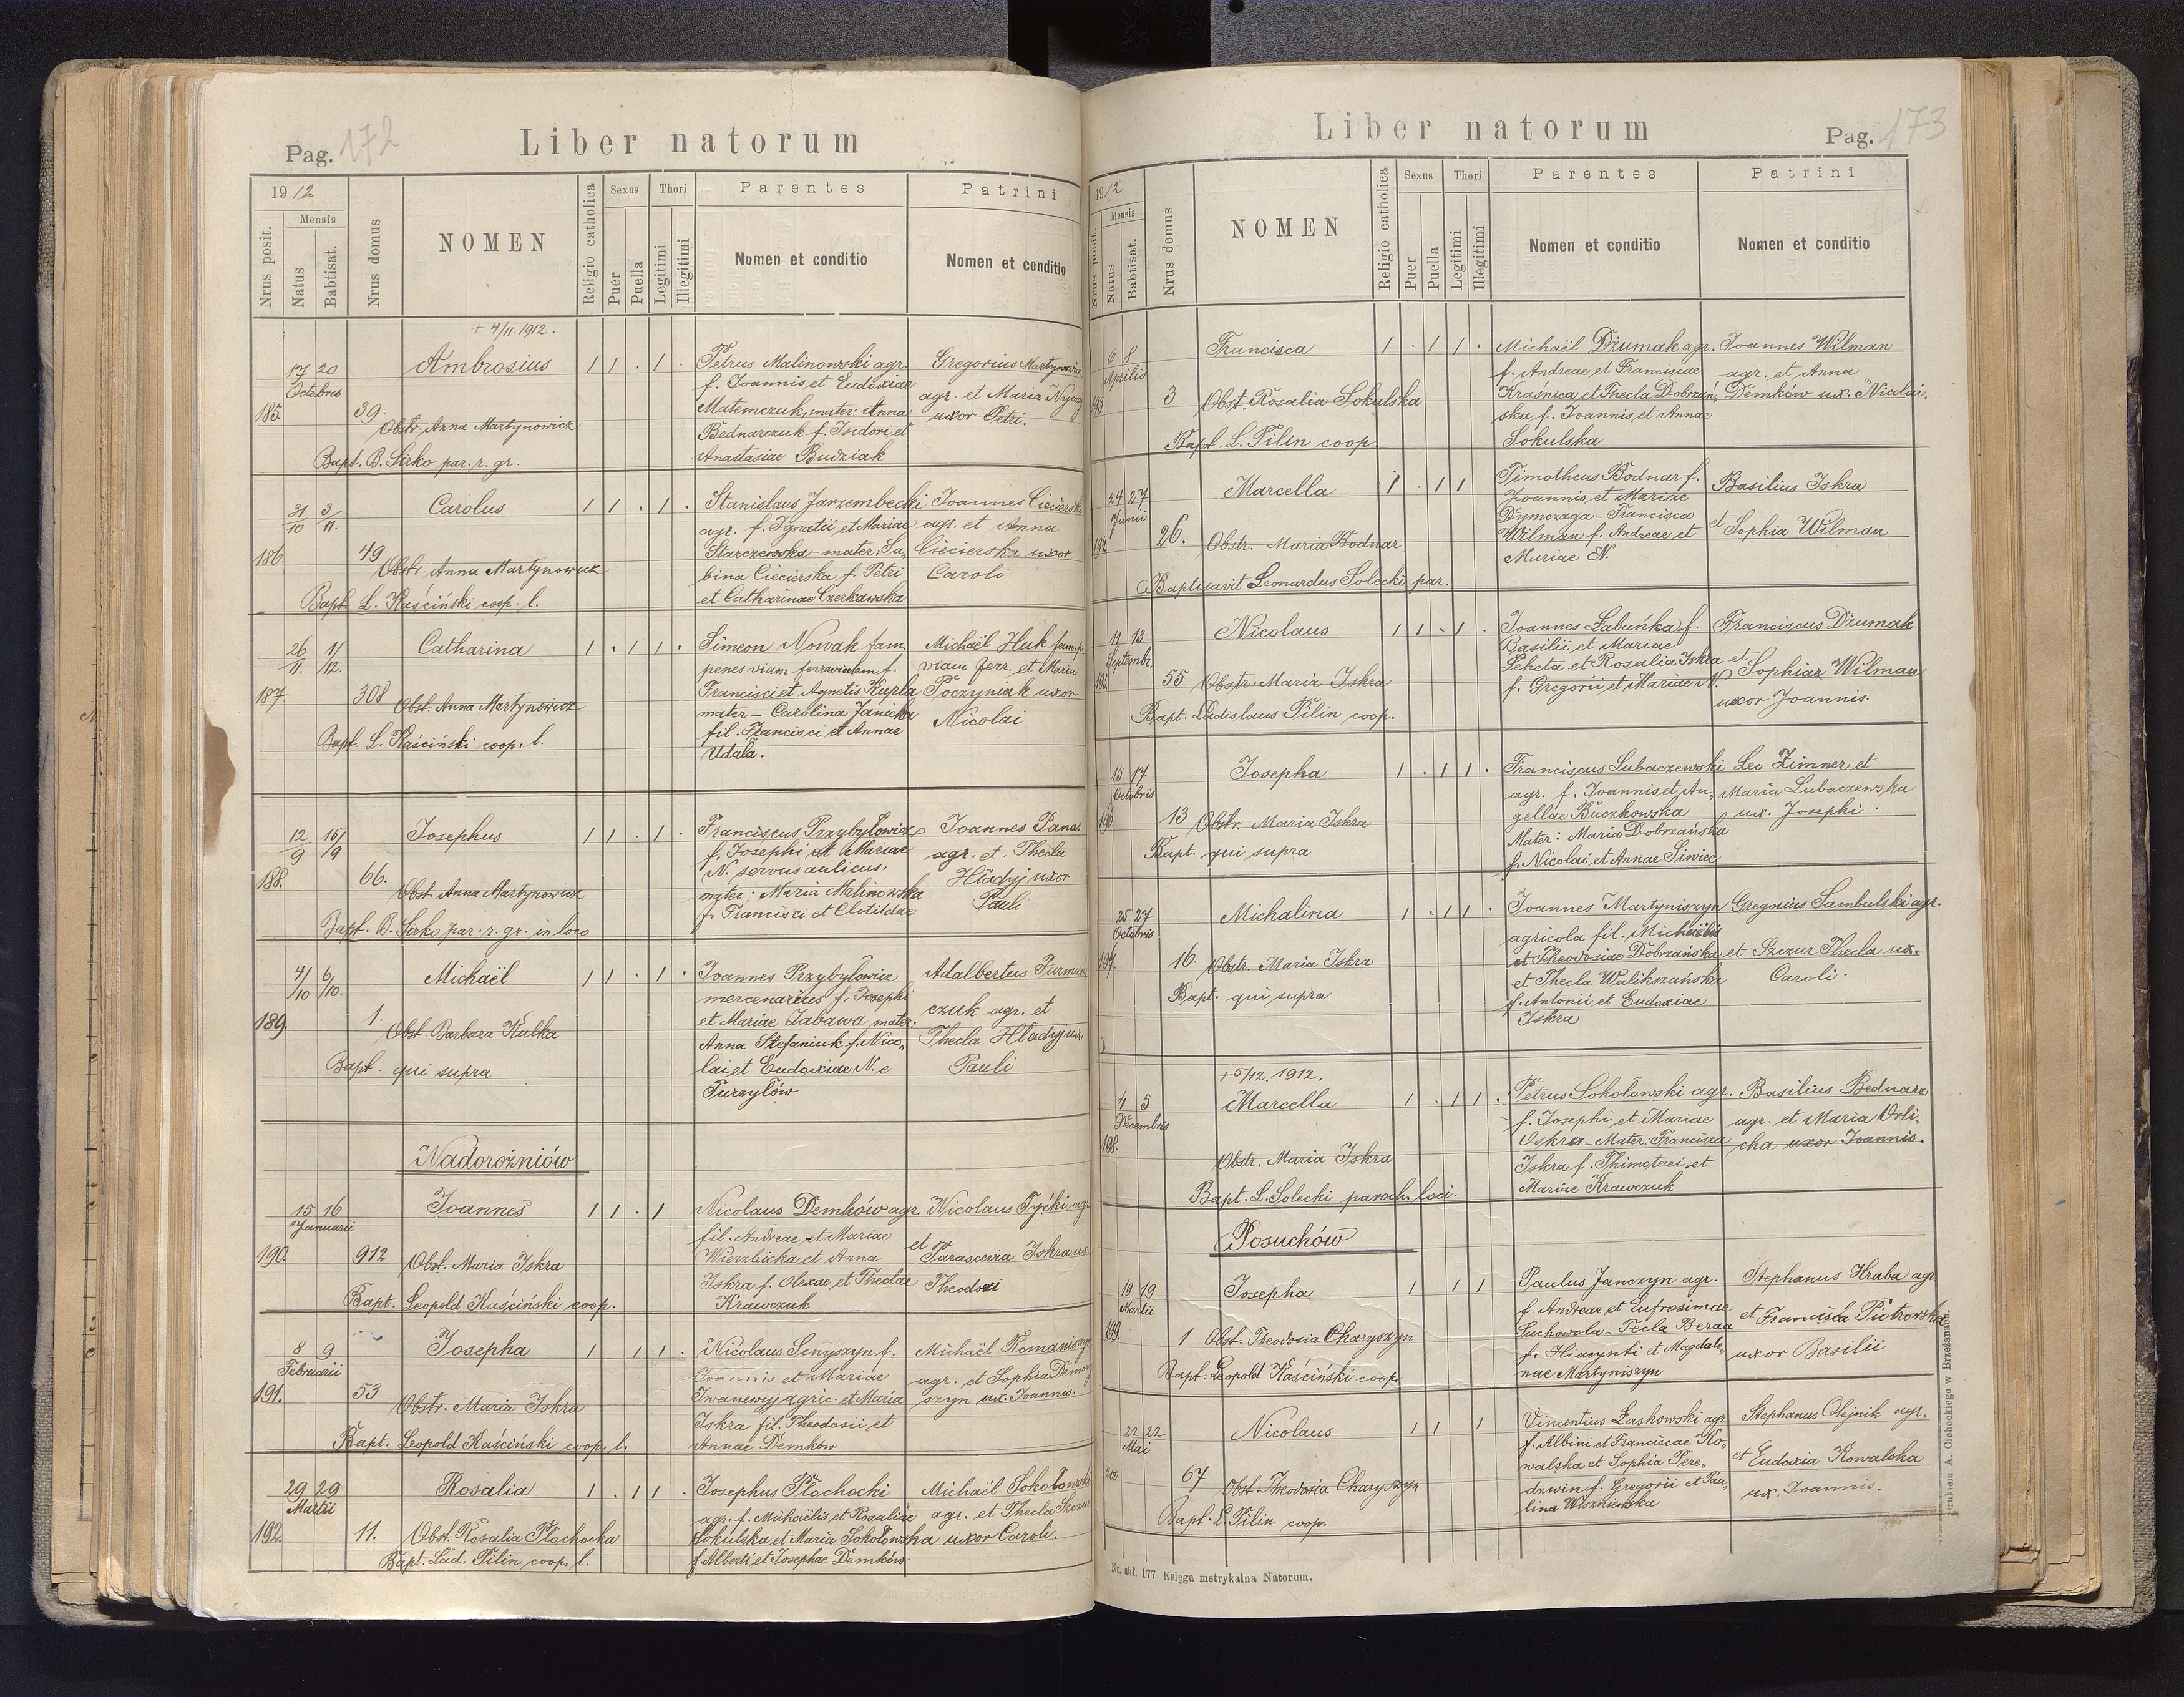 Pag. 172
Liber natorum
1912
Nrus posit.
Mensis
Natus
Babtisat.
Nrus domus
NOMEN
Religio catholica
Sexus
Puer
Puella
Thori
Legitimi
Illegitimi
Parentes
Nomen et conditio
Patrini
Nomen et conditio
+ 4/11.1912.
17 20
Octobris
185.
39.
Ambrosius
1 1 . 1 .
Obstr. Anna Martynowicz
Bapt. B. Sirko par. r. gr.
Petrus Malinowski agr.
f. Joannis et Eudoxiae
Matemczuk, mater: Anna
Bednarczuk f. Isidori et
Anastasiae Budziak
Gregorius Martynowicz
agr. et Maria
uxor Petri.
31/10 3/11.
186.
49
Carolus
1 1 . 1 .
Obstr. Anna Martynowicz
Bapt. L. Kaściński coop. l.
Stanislaus Jarzembecki
agr. f. Ignatii et Mariae
Starczewska - mater: Sa,
bina Ciecierska f. Petri
et Catharinae Czerkawska
Joannes Ciecierski
agr. et Anna
Ciecierska uxor
Caroli
26/11. 1/12.
187.
308
Catharina
1 . 1 1 .
Obst. Anna Martynowicz
Bapt. L. Kaściński coop. l.
Simeon Nowak fam.
penes viam ferrovialem f.
Francisci et Agnetis Kupla
mater - Carolina Janicka
fil. Francisci et Annae
Udała.
Michaël Huk fam. p.
viam ferr. et Maria
Poczyniak uxor
Nicolai
12/9 15/9
188.
66.
Josephus
1 1 . 1 .
Obst. Anna Martynowicz
Bapt. B. Sirko par. r. gr. in loco
Franciscus Przybyłowicz
f. Josephi et Mariae
N. servus aulicus.
mater: Maria Malinowska
f. Francisci et Clotildae
Joannes Panas
agr. et Thecla
Hładyj uxor
Pauli
4/10 6/10.
189.
1.
Michaël
1 1 . 1 .
Obst. Barbara Kulka
Bapt. qui supra
Joannes Przybyłowicz
mercenarius f. Josephi
et Mariae Zabawa mater:
Anna Stefaniuk f. Nico,
lai et Eudoxiae N. e
Turzylów
Adalbertus Furman
czuk agr. et
Thecla Hładyj ux.
Pauli
Nadorożniów
15 16
Januarii
190.
912
Joannes
1 1 . 1
Obst. Maria Iskra
Bapt. Leopold Kaściński coop.
Nicolaus Demków agr.
fil. Andreae et Mariae
Wierzbicka et Anna
Iskra f. Olexae et Theclae
Krawczuk
Nicolaus Tyćki agr.
et Parascevia Iskra ux.
Theodori
8 9
Februarii
191.
53
Josepha
1 1 1 .
Obstr. Maria Iskra
Bapt. Leopold Kaściński coop. l.
Nicolaus Senyszyn f.
Joannis et Mariae
Iwanewyj agric. et Maria
Iskra fil. Theodosii et
Annae Demków
Michaël Romaniszyn
agr. et Sophia
szyn ux. Joannis.
29 29
Martii
192.
11.
Rosalia
1 . 1 1 .
Obst. Rosalia Płochocka
Bapt. Lad. Pilin coop. l.
Josephus Płochocki
agr. f. Michaëlis et Rosaliae
Sokulska et Maria Sokołowska
f. Alberti et Josephae Demków
Michaël Sokołowski
agr. et Thecla Szczur
uxor Caroli.
Liber natorum
Pag. 173
1912
Nrus posit.
Mensis
Natus
Babtisat.
Nrus domus
NOMEN
Religio catholica
Sexus
Puer
Puella
Thori
Legitimi
Illegitimi
Parentes
Nomen et conditio
Patrini
Nomen et conditio
6 8
Aprilis
193.
3
Francisca
1 . 1 1 .
Obst. Rosalia Sokulska
Bapt. L. Pilin coop.
Michaël Dżumak agr.
f. Andreae et Franciscae
Kraśnica et Thecla Dobrzań,
ska f. Joannis et Annae
Sokulska
Joannes Wilman
agr. et Anna
Demków ux. Nicolai.
24 27
Junii
194.
26.
Marcella
1 . 1 1
Obstr. Maria Bodnar
Baptisavit Leonardus Solecki par.
Timotheus Bodnar f.
Joannis et Mariae
Dymczaga - Francisca
Wilman f. Andreae et
Mariae N.
Basilius Iskra
et Sophia Wilman
11 13
Septembr.
195.
55
Nicolaus
1 1 . 1 .
Obstr. Maria Iskra
Bapt. Ladislaus Pilin coop.
Joannes Łabuńka f.
Basilii et Mariae
Leheta et Rosalia Iskra
f. Gregorii et Mariae N.
Franciscus Dżumak
et Sophiaz Wilman
uxor Joannis.
15 17
Octobris
196.
13
Josepha
1 . 1 1 .
Obstr. Maria Iskra
Bapt. qui supra
Franciscus Lubaczewski
agr. f. Joannis et An,
gellae Buczkowska
Mater: Maria Dobrzańska
f. Nicolai et Annae Siwiec
Leo Zimner et
Maria Lubaczewska
ux. Josephi.
25 27
Octobris
197.
16.
Michalina
1 . 1 1 .
Obstr. Maria Iskra
Bapt. qui supra
Joannes Martyniszyn
agricola fil. Michaëlis
et Theodosiae Dobrzańska
et Thecla Walikszańska
f. Antonii et Eudoxiae
Iskra
Gregorius Sambulski agr.
et Szczur Thecla ux.
Caroli.
+5/12. 1912.
4 5
Decembris
198.
Marcella
1 . 1 1 .
Obstr. Maria Iskra
Bapt. L. Solecki paroch. loci.
Petrus Sokołowski agr.
f. Josephi et Mariae
Oskres - Mater: Francisca
Iskra f. Thimotei et
Mariae Krawczuk
Basilius Bednarz
agr. et Maria Orli,
cha uxor Joannis.
Posuchów
19 19
Martii
199.
1
Josepha
1 1 1
Obst. Theodosia Charyszyn
Bapt. Leopold Kaściński coop.
Paulus Janczyn agr.
f. Andreae et Eufrosimae
Suchowola - Tecla Beraa
f. Hiacynti et Magdale,
nae Martyniszyn
Stephanus Hraba agr.
et Francisca Piotrowska
uxor Basilii
22 22
Mai
200
67
Nicolaus
1 1 1
Obst. Theodosia Charyszyn
Bapt. L. Pilin coop.
Vincentius Łaskowski agr.
f. Albini et Franciscae Ko,
walska et Sophia Tere,
dzwin f. Gregorii et Pau,
lina Wiszniewska
Stephanus Olejnik agr.
et Eudoxia Kowalska
ux. Joannis.
Nr. skł. 177 Księga metrykalna Natorum.
Drukiem A. Cichockiego w Brzeżanach.